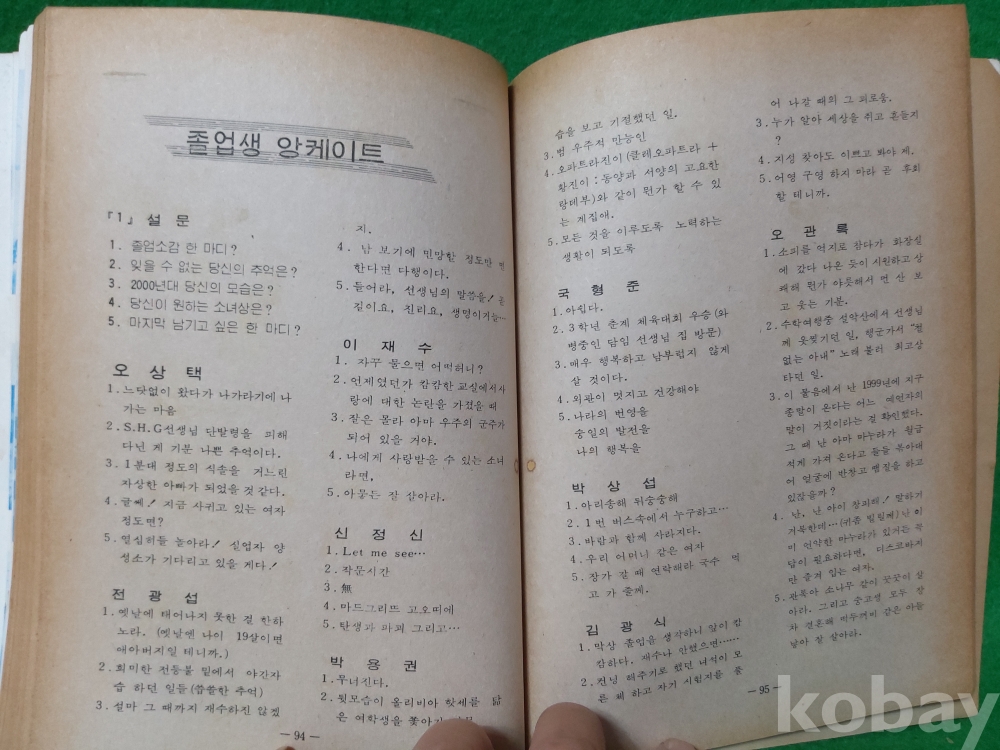 졸업생 앙케이트
『1』 설 문
1. 졸업소감 한 마디?
2. 잊을 수 없는 당신의 추억은?
3. 2000년대 당신의 모습은?
4. 당신이 원하는 소녀상은?
5. 마지막 남기고 싶은 한 마디?
오 상 택
1. 느닷없이 왔다가 나가라기에 나
가는 마음
2. S.H.G선생님 단발령을 피해
다닌 게 기분 나쁜 추억이다.
3. 1분대 정도의 식솔을 거느린
자상한 아빠가 되었을 것 같다.
4. 글쎄! 지금 사귀고 있는 여자
정도면?
5. 열심히들 놀아라! 실업자 양
성소가 기다리고 있을 게다!
전 광 섭
1. 옛날에 태어나지 못한 걸 한하
노라. (옛날엔 나이 19살이면
애아버지일 테니까.)
2. 희미한 전등불 밑에서 야간자
습 하던 일들(쓸쓸한 추억)
3. 설마 그 때까지 재수하진 않겠
— 94 —
지.
4. 남 보기에 민망할 정도만 면
한다면 다행이다.
5. 들어라, 선생님의 말씀을! 곧
길이요, 진리요, 생명이거늘…
이 재 수
1. 자꾸 물으면 어떡허니?
2. 언제였던가 캄캄한 교실에서 사
랑에 대한 논란을 가졌을 때
3. 잘은 몰라 아마 우주의 군주가
되어 있을 거야.
4. 나에게 사랑받을 수 있는 소녀
라면,
5. 아뭏든 잘 살아라.
신 정 신
1. Let me see…
2. 작문시간
3. 無
4. 마드그리뜨 고오띠에
5. 탄생과 파괴 그리고…
박 용 권
1. 무너진다.
2. 뒷모습이 올리비아 핫세를 닮
은 여학생을 쫓아가
습을 보고 기절했던 일.
3. 범 우주적 만능인
4. 오파트라진이 (클레오파트라 +
황진이 : 동양과 서양의 고요한
랑데부)와 같이 뭔가 할 수 있
는 계집애.
5. 모든 것을 이루도록 노력하는
생활이 되도록
국 형 준
1. 아쉽다.
2. 3학년 춘계 체육대회 우승 (와
병중인 담임 선생님 집 방문)
3. 매우 행복하고 남부럽지 않게
살 것이다.
4. 외관이 멋지고 건강해야
5. 나라의 번영을
숭일의 발전을
나의 행복을
박 상 섭
1. 아리송해 뒤숭숭해
2. 1번 버스속에서 누구하고…
3. 바람과 함께 사라지다.
4. 우리 어머니 같은 여자
5. 장가 갈 때 연락해라 국수 먹
고 가 줄께.
김 광 식
1. 막상 졸업을 생각하니 앞이 캄
캄하다. 재수나 안했으면……
2. 컨닝 해주기로 했던 녀석이 모
른 체 하고 자기 시험지를 풀
— 95 —
어 나갈 때의 그 괴로움.
3. 누가 알아 세상을 쥐고 흔들지
?
4. 지심 찾아도 이쁘고 봐야 제.
5. 어영 구영 하지 마라 곧 후회
할 테니까.
오 관 록
1. 소피를 억지로 참다가 화장실
에 갔다 나온 듯이 시원하고 상
쾌해 뭔가 야릇해서 먼 산 보
고 웃는 기분.
2. 수학여행중 설악산에서 선생님
께 옷찢기던 일, 행군가서 "철
없는 아내" 노래 불러 최고상
타던 일.
3. 이 물음에서 난 1999년에 지구
종말이 온다는 어느 예언자의
말이 거짓이라는 걸 확인했다.
그 때 난 아마 마누라가 월급
적게 가져 온다고 들들 볶아대
어 얼굴에 반창고 땜질을 하고
있잖을까?
4. 난, 난 아이 창피해! 말하기
거북한데… (귀좀 빌릴께) 난 이
미 언약한 마누라가 있거든 꼭
답이 필요하다면, 디스코바지
만 즐겨 입는 여자.
5. 관복아 소나무 같이 꿋꿋이 살
아라. 그리고 충고성 모두 장
차 결혼해 떡두꺼비 같은 아들
낳아 잘 살아라.
kobay